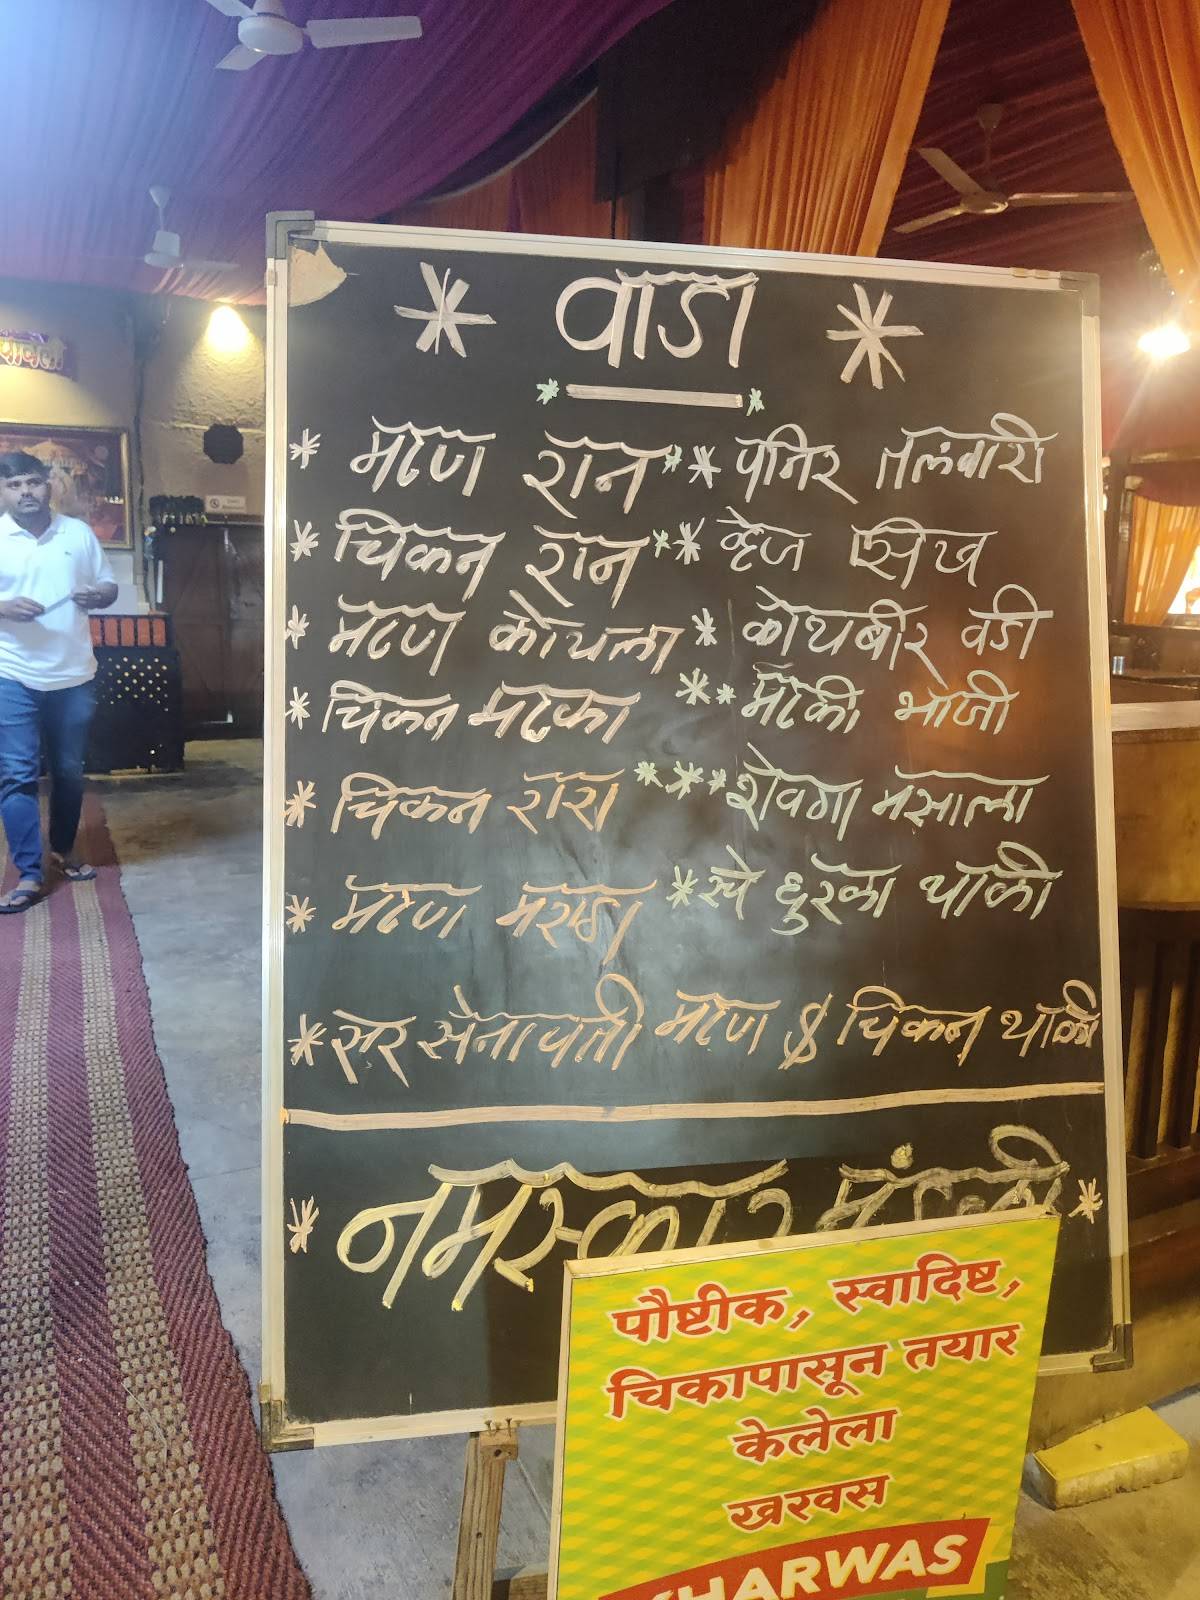 * वाडा *
* मटण रान
* चिकन रान
* मटण कोयला
* चिकन मटका
* चिकन रारा
* मटण मराठा
* पनिर तलवारी
* व्हेज सिख
* कोथबीर वडी
* मटकी भाजी
* शेवगा मसाला
* चे धुरळा थाळी
* सर सेनापती मटण & चिकन थाळी
* नमस्कार मंडळी *
पौष्टीक, स्वादिष्ट,
चिकापासून तयार
केलेला
खरवस
KHARWAS